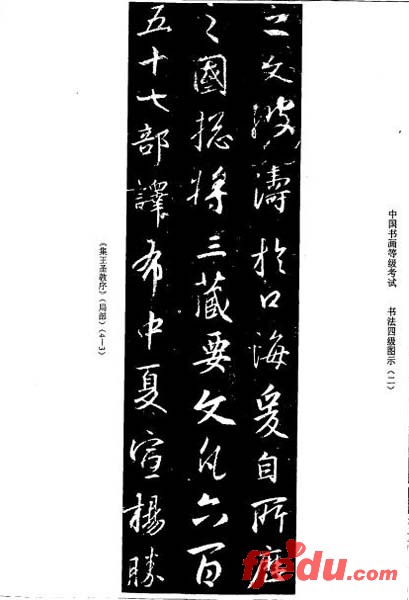 中国书画等级考试 书法四级图示(二)
之文波濤於口海爰自所歷
之國揔將三藏要文凡六百
五十七部譯布中夏宣揚勝
《集王圣教序》(局部)(4—3)
fjedu.com